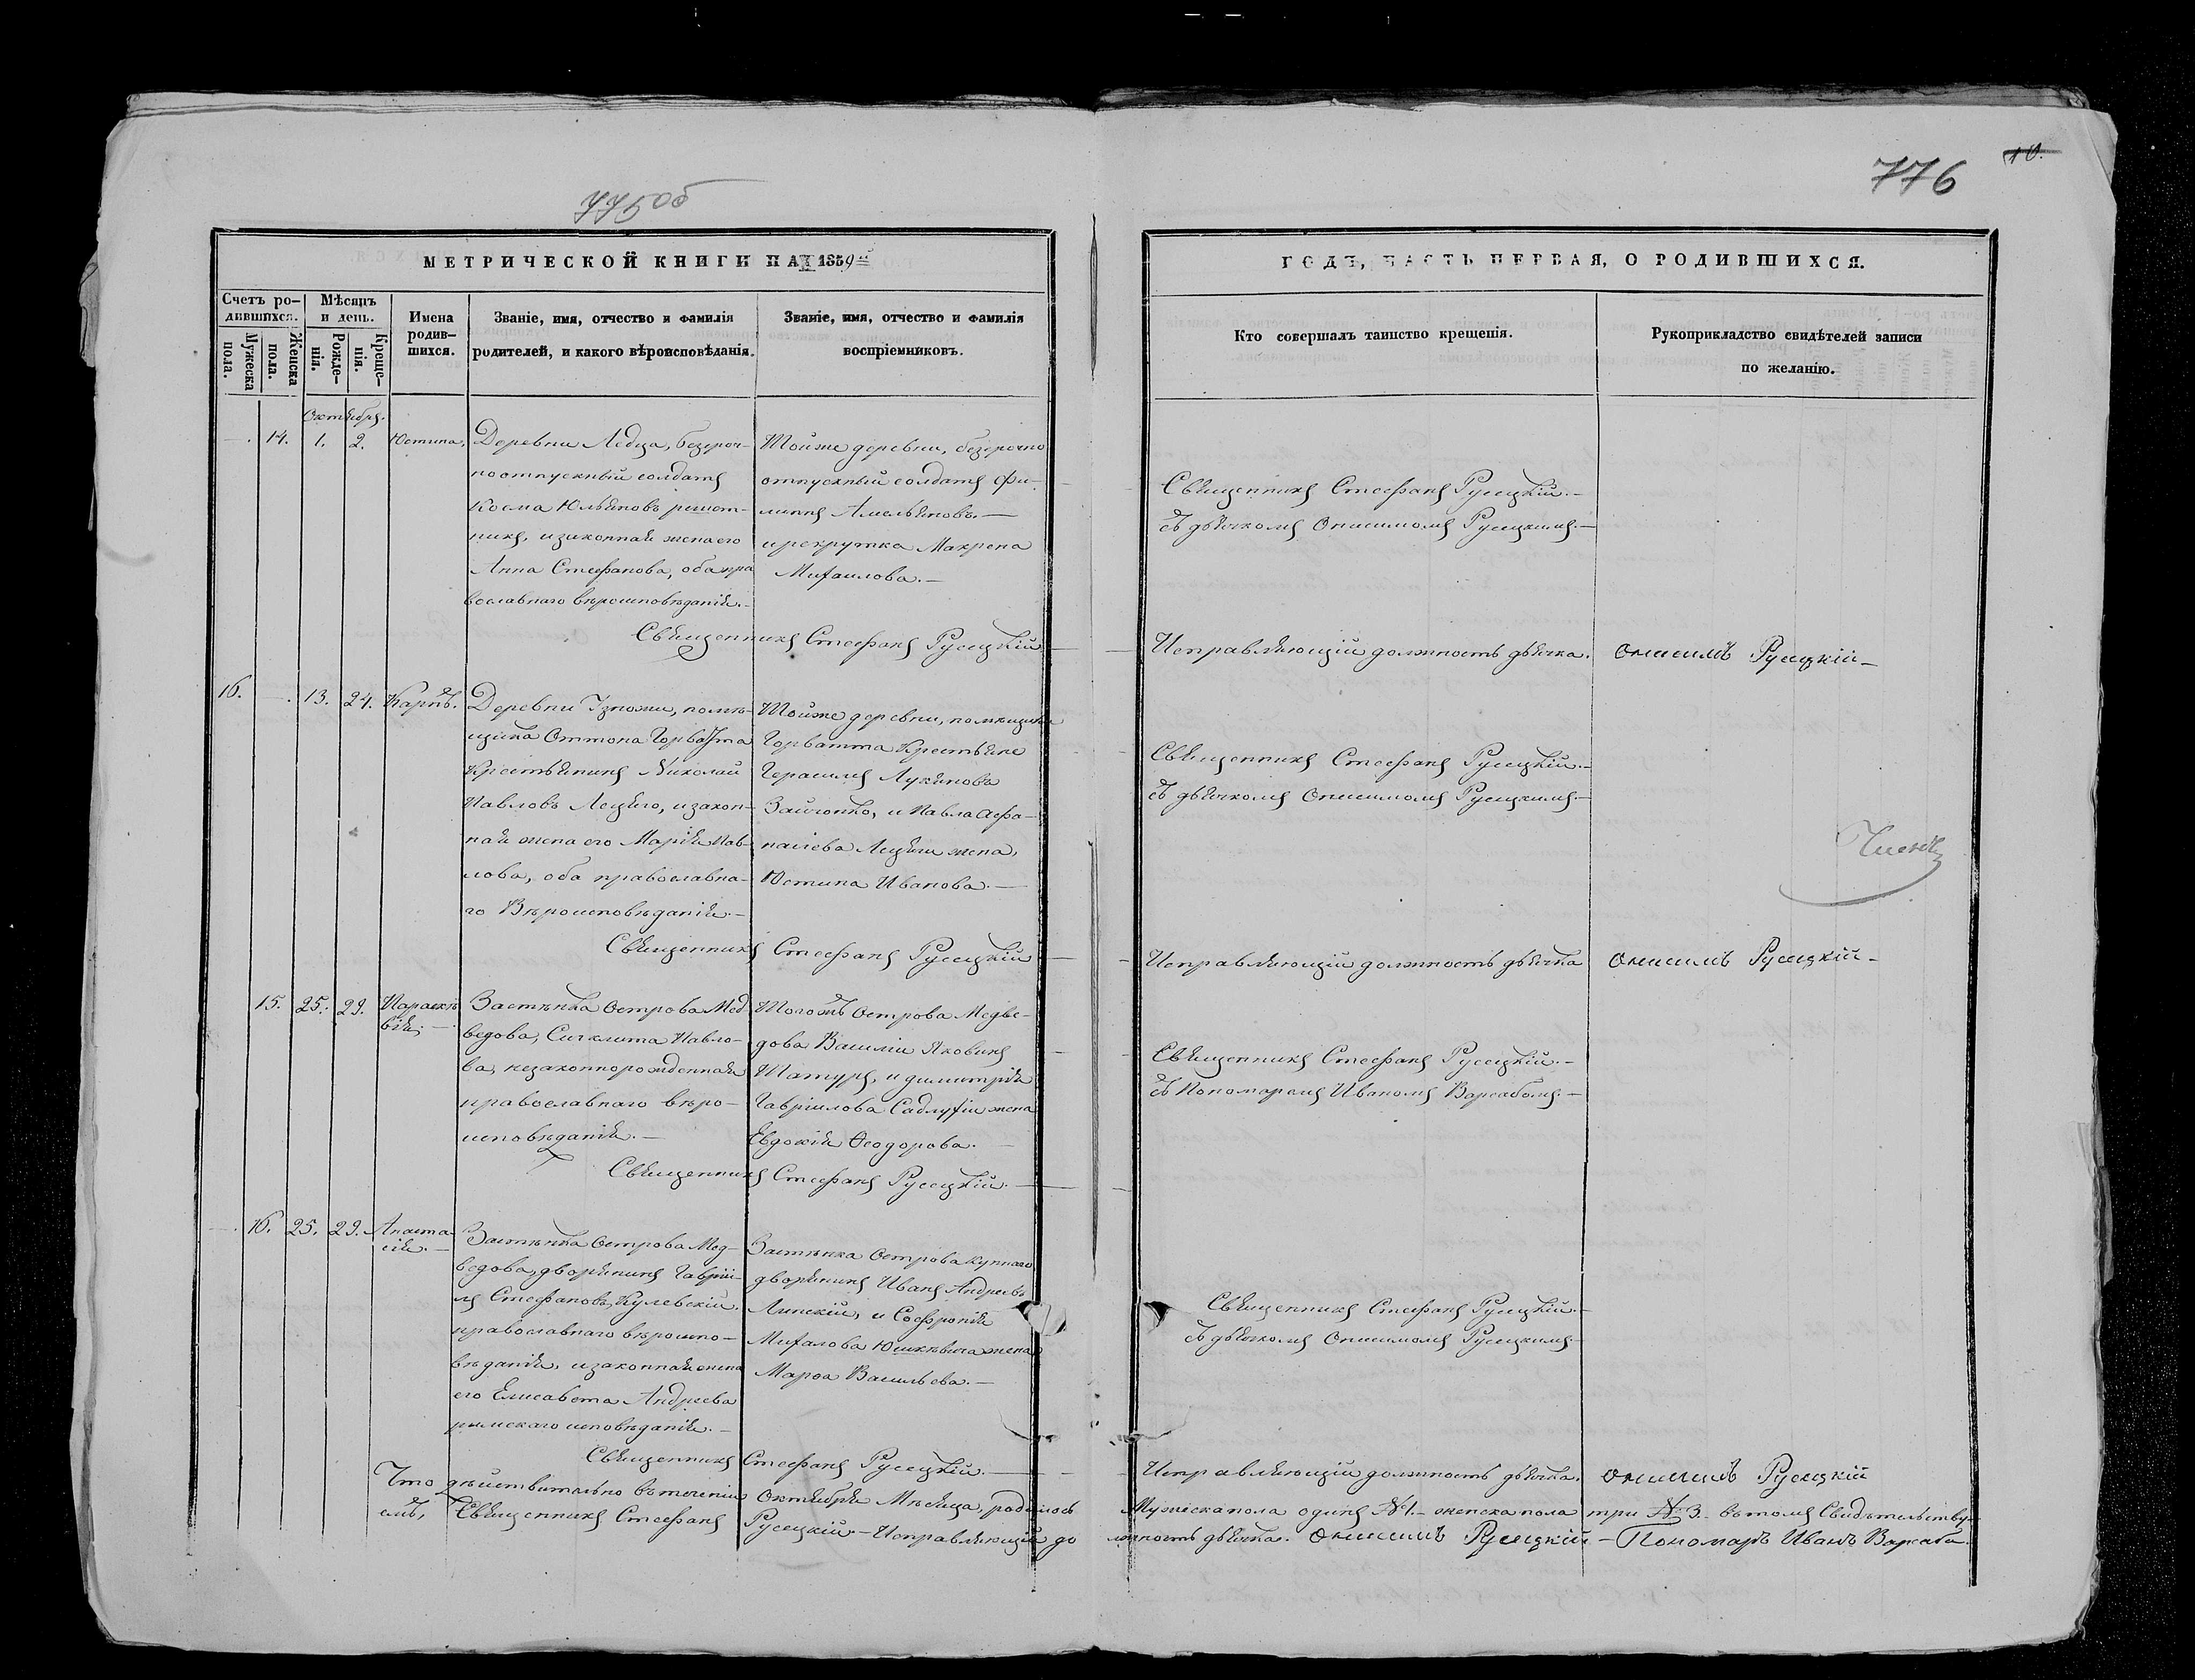 775об
776
10.
МЕТРИЧЕСКОЙ КНИГИ НА 1859й
ГОДЪ, ЧАСТЬ ПЕРВАЯ, О РОДИВШИХСЯ.
Счетъ ро-
дившихся.
Мужеска
пола.
Женска
пола.
Мѣсяцъ
и день.
Рожде-
нія.
Креще-
нія.
Имена
родив-
шихся.
Званіе, имя, отчество и фамилія
родителей, и какого вѣроисповѣданія.
Званіе, имя, отчество и фамилія
воспріемниковъ.
Кто совершалъ таинство крещенія.
Рукоприкладство свидѣтелей записи
по желанію.
Октября.
14. 1. 2. Юстина.
Деревни Ледца, безсроч-
ноотпускный солдатъ
Косма Юльяновъ решот-
никъ, и законная жена его
Анна Стефанова, оба пра
вославнаго вѣроисповѣданія.-
Тойже деревни, безсрочно
отпускный солдатъ Фи-
липпъ Амельяновъ.-
и рекрутка Макрена
Михаилова.-
Священникъ Стефанъ Русецкій.-
съ дьячкомъ Онисимомъ Русецкимъ.-
Священникъ Стефанъ Русецкій
Исправляющій должность дьячка. Онисимъ Русецкій-
16. -. 13. 24. Карпъ.
Деревни помѣ-
щика Оттона Горватта
Крестьянинъ Николай
Павловъ Лецяго, и закон-
ная жена его Марія Пав-
лова, оба православна-
го Вѣроисповѣданія.-
Тойже деревни, помѣщика
Горватта Крестьяне
Герасимъ Лукяновъ
и Павла Афа-
насіева Лецяги жена,
Юстина Иванова.-
Священникъ Стефанъ Русецкій.-
съ дьячкомъ Онисимомъ Русецкимъ.-
Священникъ Стефанъ Русецкій
Исправляющій должность дьячка Онисимъ Русецкій-
15. 25. 29. Параске
вія;-
Застѣнка Острова Мед
ведова, Сигклита Павло-
ва, незаконнорожденная
православнаго вѣро-
исповѣданія.-
Тогожъ Острова Медве-
дова Василій Яковинъ
Шатура, и димитрія
Гавріилова Садлухи жена
Евдокія Ѳеодорова.
Священникъ Стефанъ Русецкій.-
съ Пономаремъ Иваномъ Варсабомъ.-
Священникъ Стефанъ Русецкій.-
16. 25. 29. Анаста-
сія.-
Застѣнка Острова Мед-
ведова, дворянинъ Гаврии-
лъ Стефановъ Кулевскій.
православнаго вѣроиспо-
вѣданія, и законная жена
его Елисавета Андреева
римскаго исповѣданія.-
Застѣнка Острова купнаго
дворянинъ Иванъ Андреевъ
Липскій, и Софронія
Михалова Юшкевича жена
Марѳа Васильева.-
Священникъ Стефанъ Русецкій.-
съ дьячкомъ Онисимомъ Русецкимъ-
Священникъ Стефанъ Русецкій.-
Исправляющій должность дьячка. Онисимъ Русецкій
Что дѣйствительно въ теченіи Октября Мѣсяца, родилось Мужеска пола одинъ №1.- женска пола три № 3.- въ томъ Свидѣтельству-
емъ, Священникъ Стефанъ Русецкій.- Исправляющій до лжность дьячка. Онисимъ Русецкій - Пономарь Иванъ Варсаба.